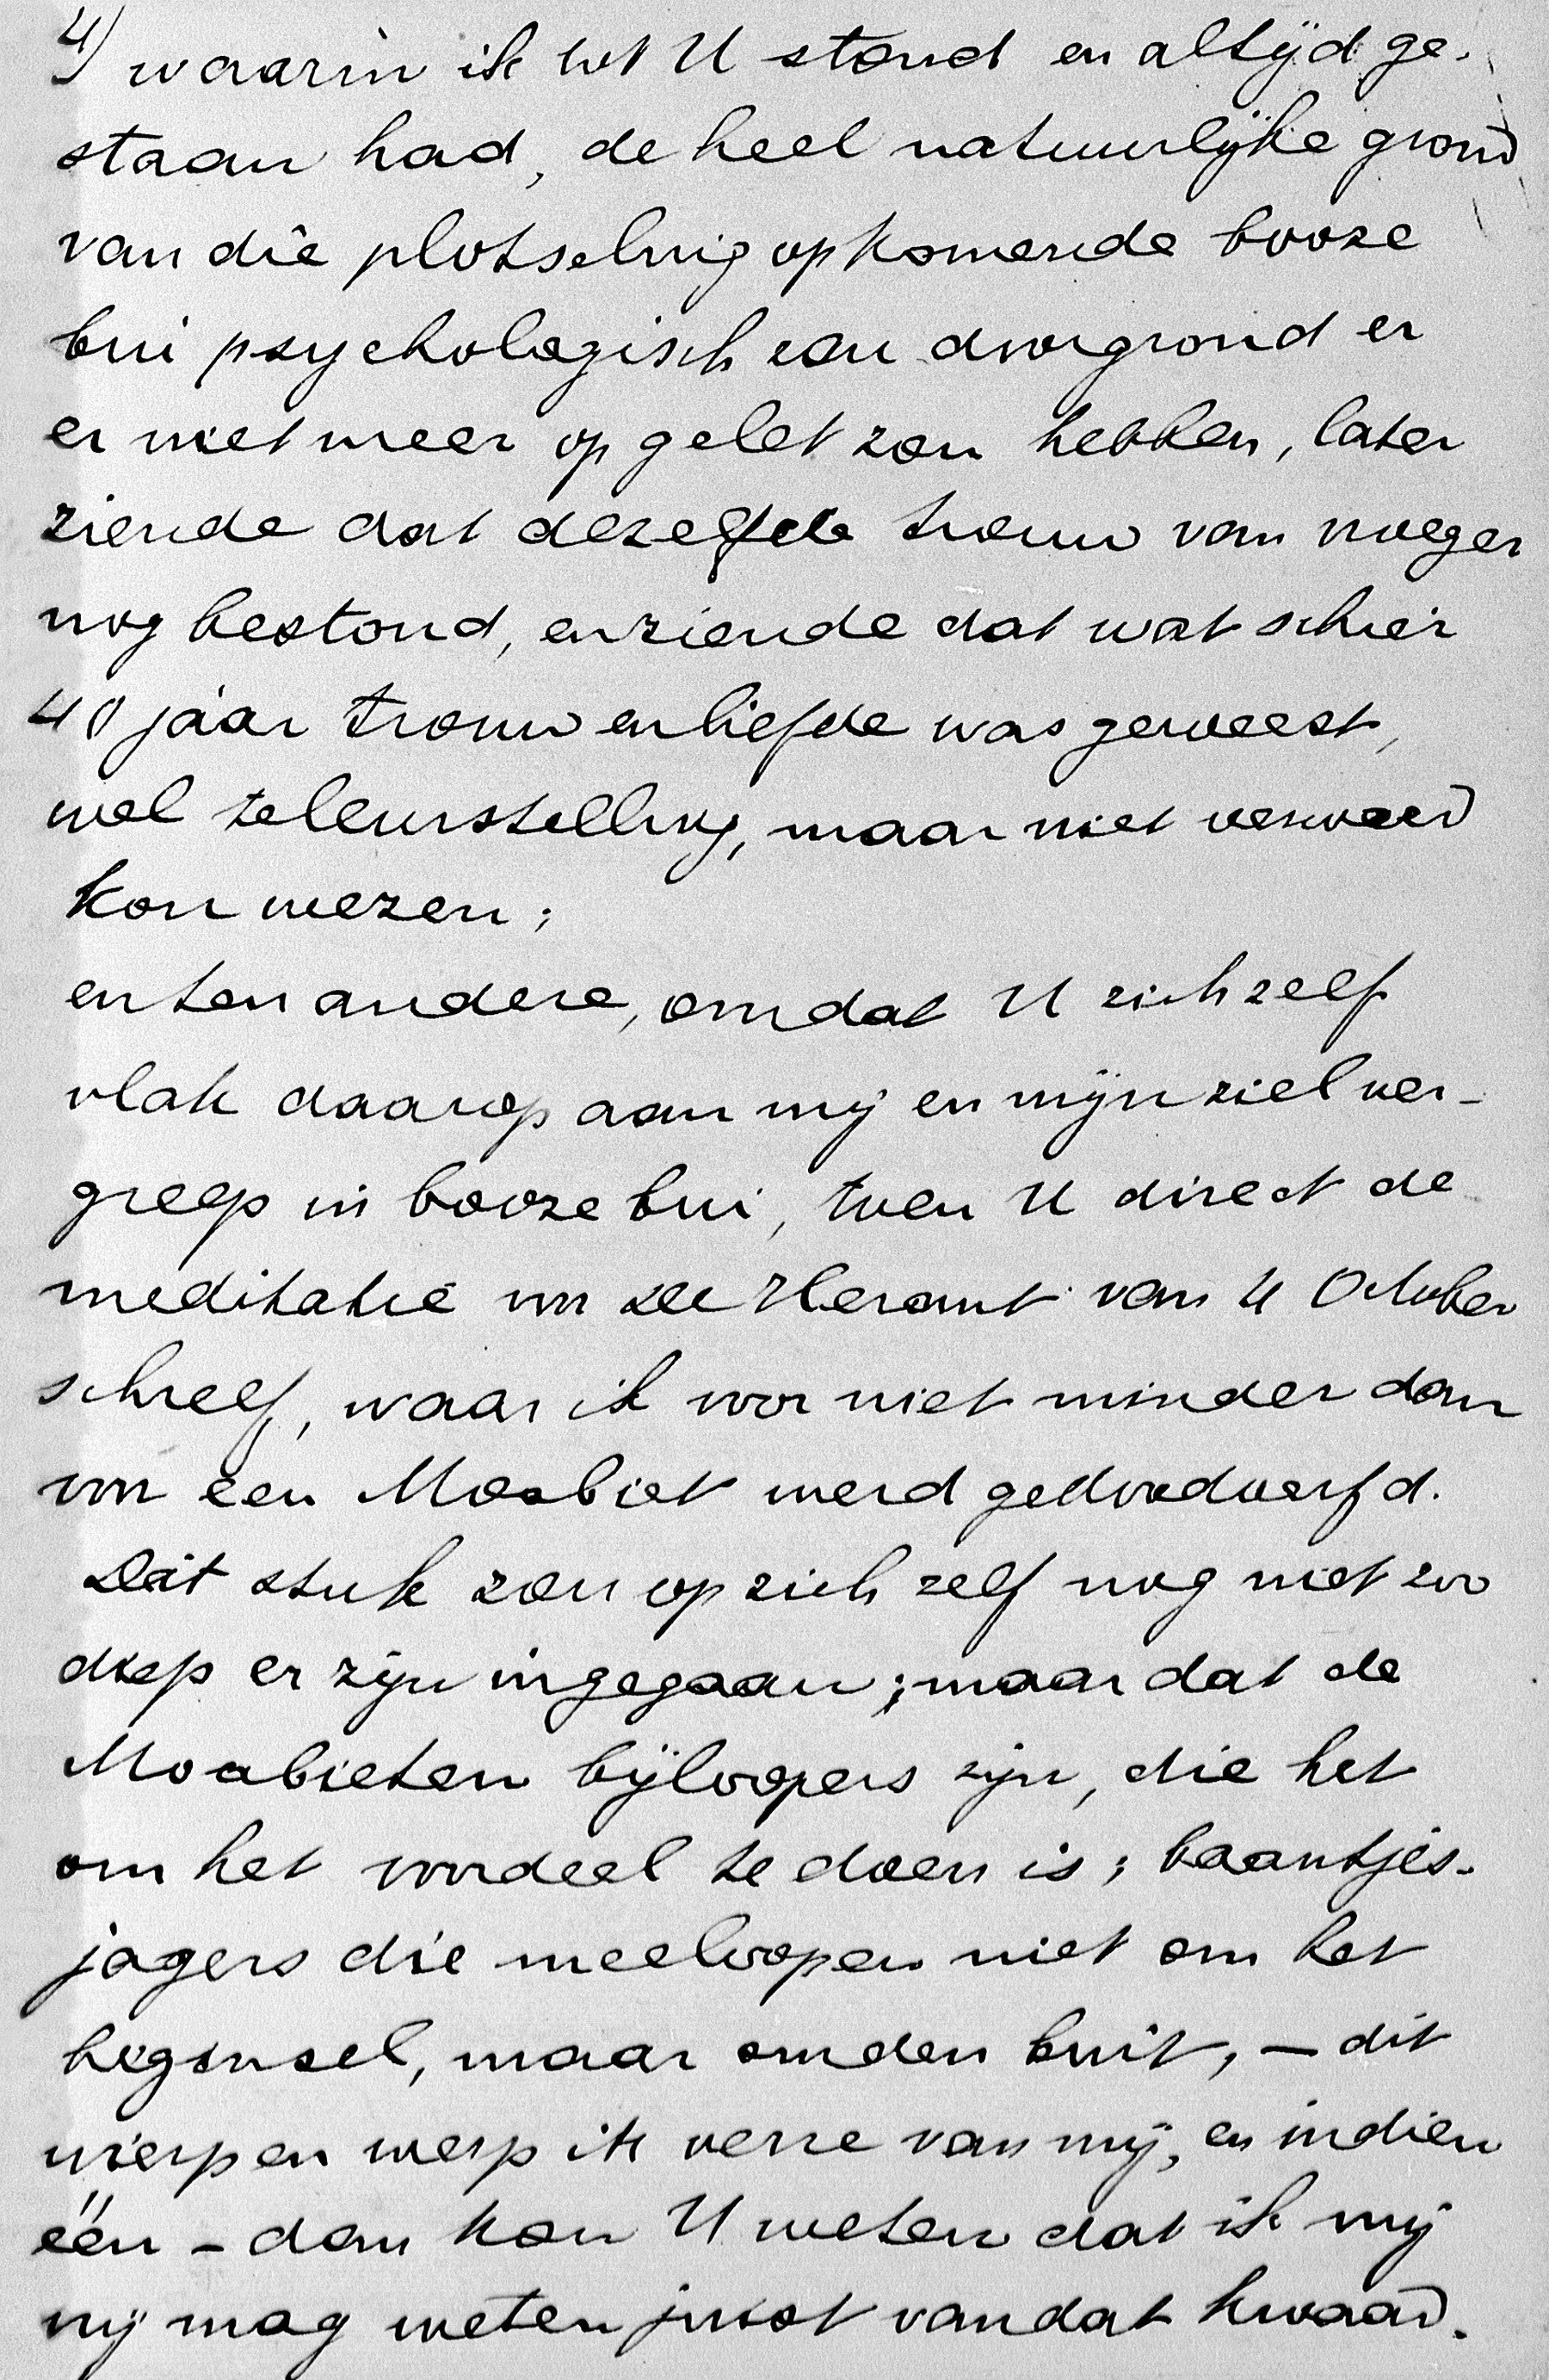 4) waarin ik tot U stond en altijd ge-
staan had, de heel natuurlijke grond
van die plotseling opkomende booze
bui psychologisch zou doorgrond er
er niet meer op gelet zou hebben, later
ziende dat dezelfde trouw van vroeger
nog bestond, en ziende dat wat schier
40 jaar trouw en liefde was geweest,
wel teleurstelling, maar niet verraad
kon wezen;
en ten andere, omdat U zich zelf
vlak daarop aan mij en mijn ziel ver-
greep in booze bui, toen U direct de
meditatie in De Heraut van 4 October
schreef, waar ik voor niet minder dan
voor een Moabiet werd gedoodverfd.
Dat stuk zou op zich zelf nog niet zoo
diep er zijn ingegaan; maar dat de
Moabieten bijloopers zijn, die het
om het voordeel te doen is; baantjes-
jagers die meeloopen niet om het
beginsel, maar om den buit, – dit
wierp en werp ik verre van mij, en indien
één – dan kon U weten dat ik mij
vrij mag weten juist van dat kwaad.